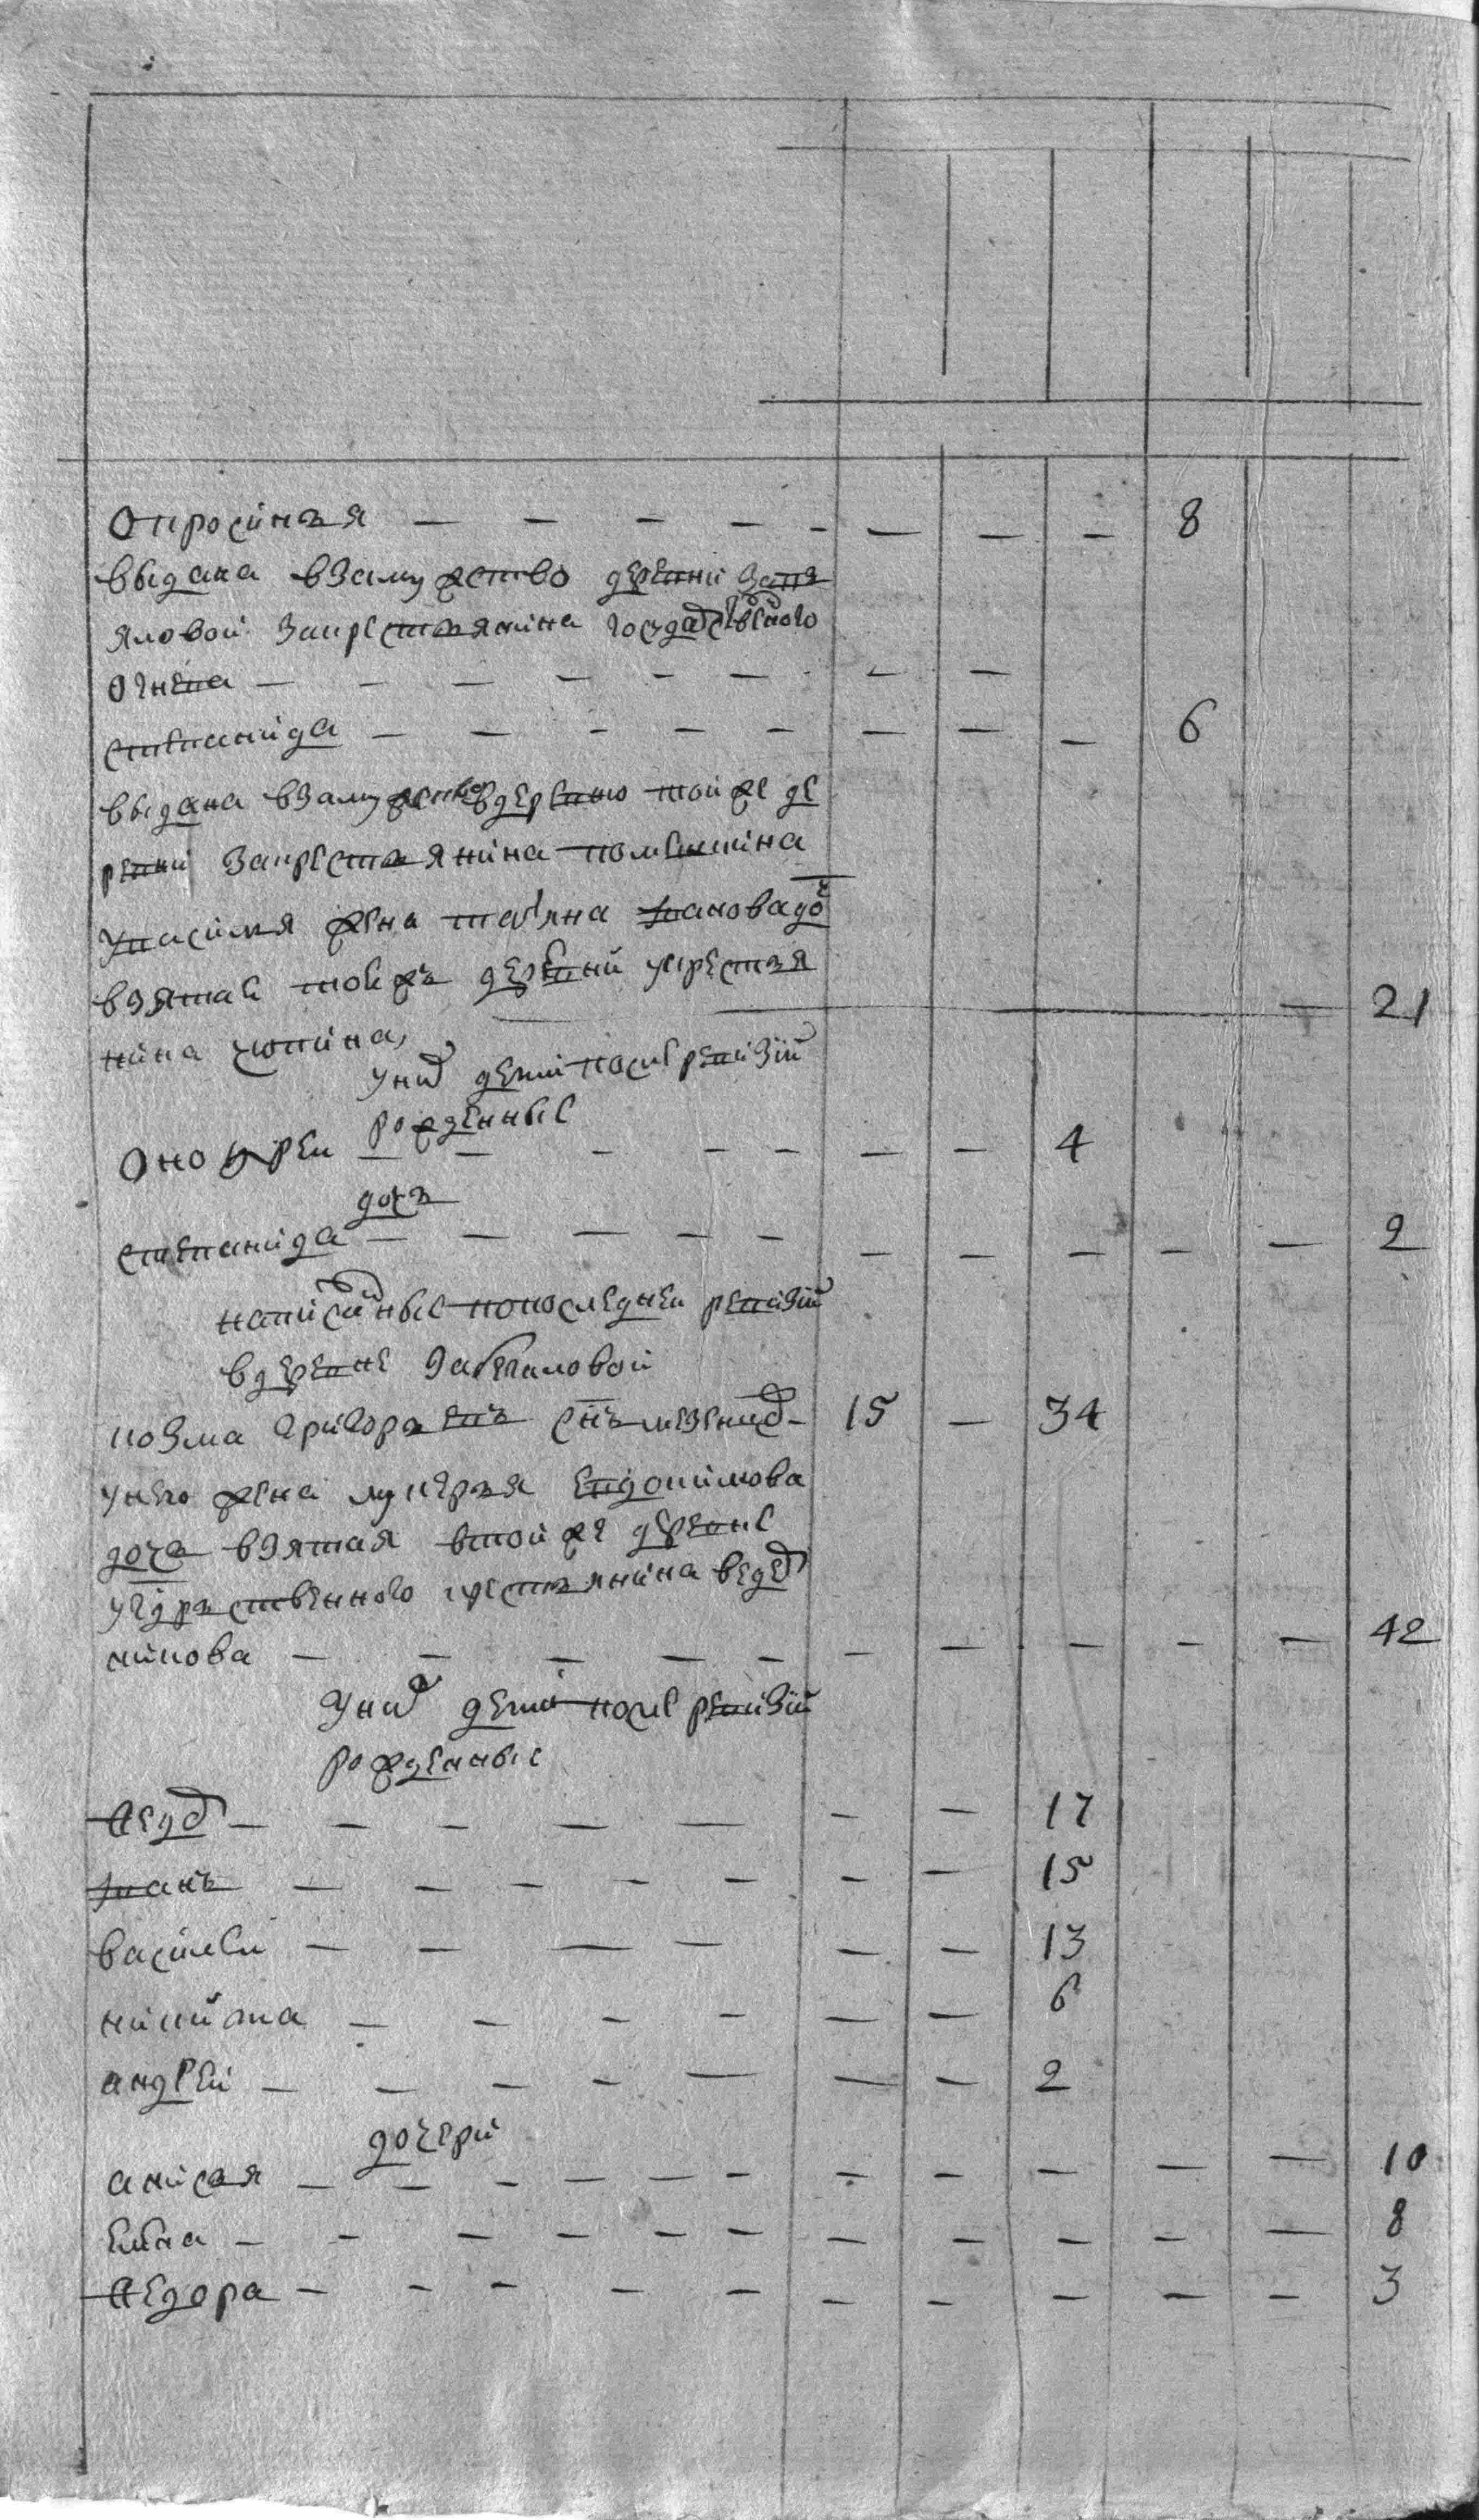 Опросинья — — — — — — — — 8
выдана взамужство деревни Запя
яловой закрестьянина государственого
огнева — — — — — — — —
степанида — — — — — — — — 6
выдана взамужство вдеревню тойже де
ревни закрестьянина комякина
Укасимя жена татьяна иванова доч
взятая тойжъ деревни укрестья
нина сюткина — 21
Уних дети послѣ ревизии
рожденные
Онофреи — — — — — — — 4
дочь
степанида — — — — — — — — — — 2
написанные попоследнеи ревизии
вдеревне Забегаловой
козма григорьевъ снъ мезених — 15 — 34
унего жена лукерья Евдокимова
дочь взятая втой же деревне
угдрьственного крестьянина веден
никова — — — — — — — — — — 42
Уних дети послѣ ревизии
рожденные
Федор — — — — — — — 17
иванъ — — — — — — — 15
василеи — — — — — — 13
никита — — — — — — 6
андреи — — — — — — — 2
дочери
анисья — — — — — — — — — — — 10
елена — — — — — — — — — — — 8
Федора — — — — — — — — — — 3